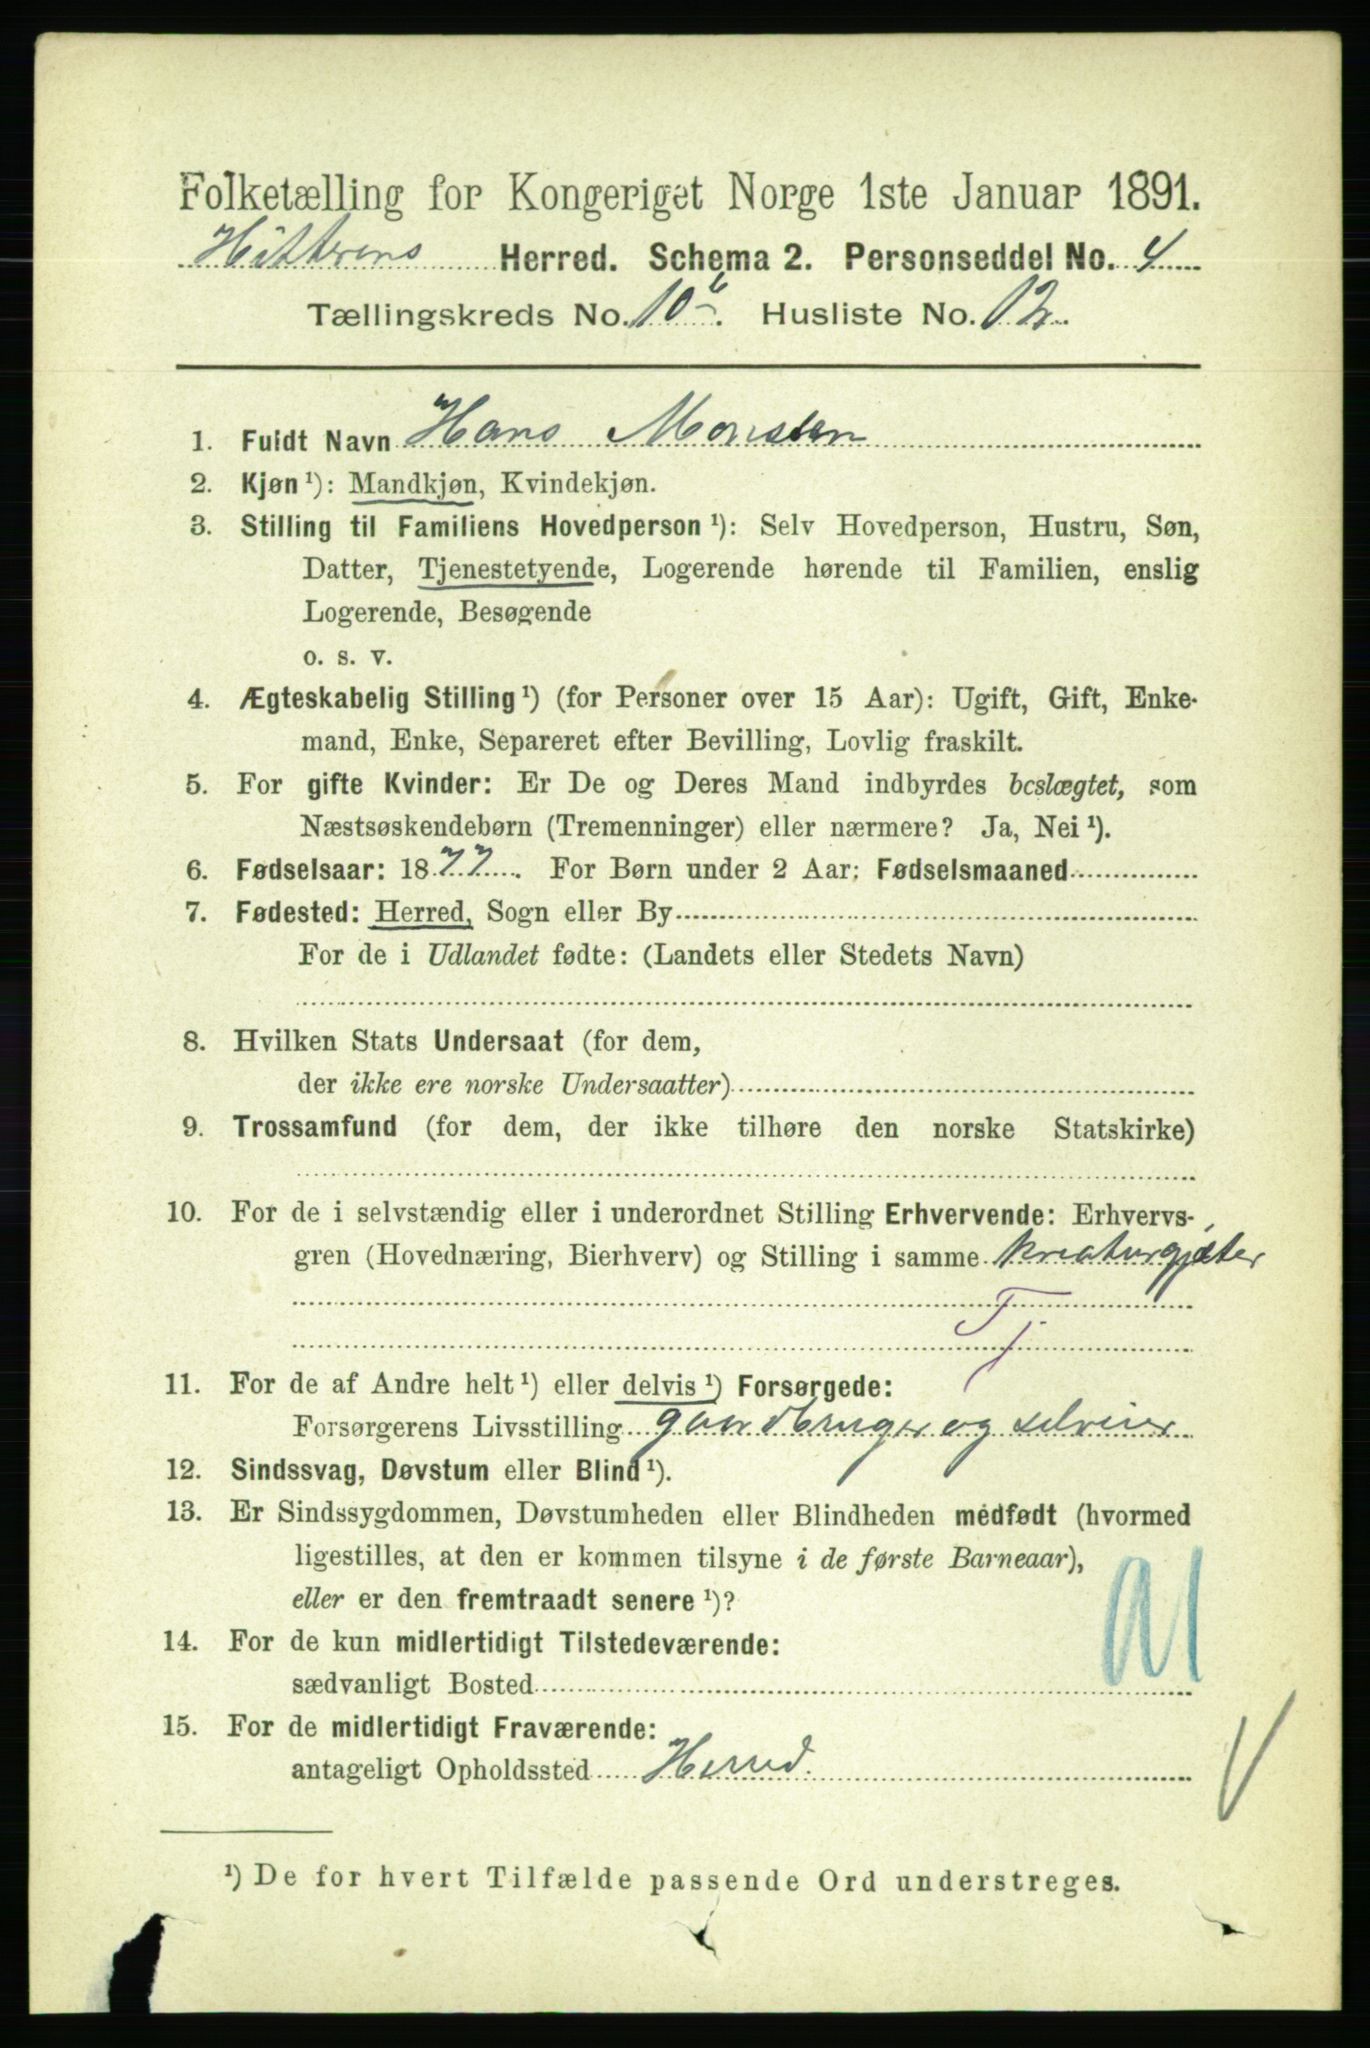 Folketælling for Kongeriget Norge 1ste Januar 1891.
Hitterens Herred. Schema 2. Personseddel No. 4
Tællingskreds No. 10 b. Husliste No. 12.
1. Fuldt Navn Hans Monsen
2. Kjøn ¹): Mandkjøn, Kvindekjøn.
3. Stilling til Familiens Hovedperson ¹): Selv Hovedperson, Hustru, Søn,
Datter, Tjenestetyende, Logerende hørende til Familien, enslig
Logerende, Besøgende
o. s. v.
4. Ægteskabelig Stilling ¹) (for Personer over 15 Aar): Ugift, Gift, Enke-
mand, Enke, Separeret efter Bevilling, Lovlig fraskilt.
5. For gifte Kvinder: Er De og Deres Mand indbyrdes beslægtet, som
Næstsøskendebørn (Tremenninger) eller nærmere? Ja, Nei ¹).
6. Fødselsaar: 1877. For Børn under 2 Aar: Fødselsmaaned
7. Fødested: Herred, Sogn eller By
For de i Udlandet fødte: (Landets eller Stedets Navn)
8. Hvilken Stats Undersaat (for dem,
der ikke ere norske Undersaatter)
9. Trossamfund (for dem, der ikke tilhøre den norske Statskirke)
10. For de i selvstændig eller i underordnet Stilling Erhvervende: Erhvervs-
gren (Hovednæring, Bierhverv) og Stilling i samme kreaturgjæter
Tj
11. For de af Andre helt ¹) eller delvis ¹) Forsørgede:
Forsørgerens Livsstilling gaardbruger og selveier
12. Sindssvag, Døvstum eller Blind ¹).
13. Er Sindssygdommen, Døvstumheden eller Blindheden medfødt (hvormed
ligestilles, at den er kommen tilsyne i de første Barneaar),
eller er den fremtraadt senere ¹)?
14. For de kun midlertidigt Tilstedeværende:
sædvanligt Bosted
15. For de midlertidigt Fraværende:
antageligt Opholdssted Herred.
¹) De for hvert Tilfælde passende Ord understreges.